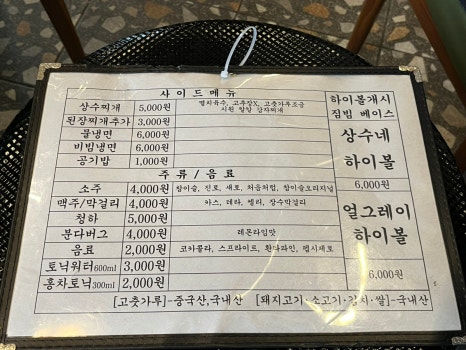 사이드메뉴
상수찌개 5,000원 멸치육수, 고추장X, 고춧가루조금
시원 칼칼 감자찌개
된장찌개추가 3,000원
물냉면 6,000원
비빔냉면 6,000원
공기밥 1,000원
주류/음료
소주 4,000원 참이슬, 진로, 새로, 처음처럼, 참이슬오리지널
맥주/막걸리 4,000원 카스, 테라, 켈리, 장수막걸리
청하 5,000원
분다버그 4,000원 레몬라임맛
음료 2,000원 코카콜라, 스프라이트, 환타파인, 펩시제로
토닉워터600ml 3,000원
홍차토닉300ml 2,000원
하이볼개시
짐빔 베이스
상수네
하이볼
6,000원
얼그레이
하이볼
6,000원
[고춧가루]-중국산,국내산 [돼지고기·소고기·김치·쌀]-국내산